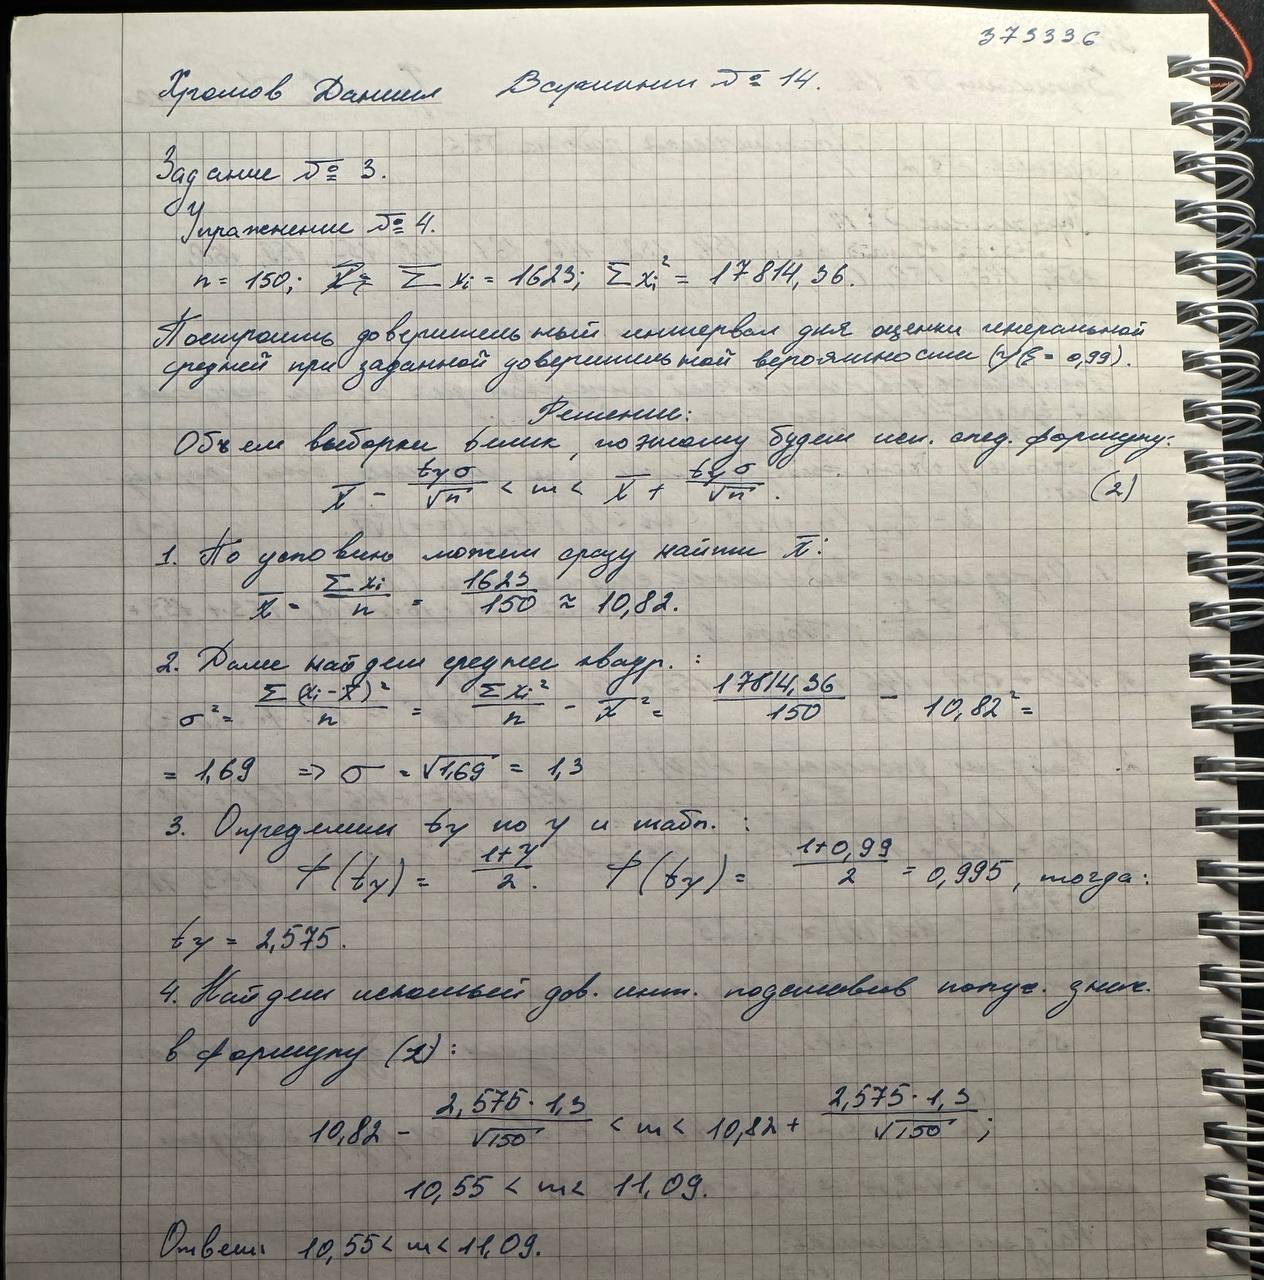 373336
Хромов Даниил Вариант № 14.
Задание № 3.
Упражнение № 4.
n = 150; Σ xᵢ = 1623; Σ xᵢ² = 17814,36.
Построить доверительный интервал для оценки генеральной
средней при заданной доверительной вероятности (γ = 0,99).
Решение:
Объем выборки велик, поэтому будем исп. след. формулу:
x̄ - tγσ/√n < m < x̄ + tγσ/√n. (2)
1. По условию можем сразу найти x̄:
x̄ = Σ xᵢ/n = 1623/150 ≈ 10,82.
2. Далее найдем средне квадр. :
σ² = Σ (xᵢ - x̄)²/n = Σ xᵢ²/n - x̄² = 17814,36/150 - 10,82² =
= 1,69 => σ = √1,69 = 1,3
3. Определим tγ по γ и табл. :
Φ(tγ) = (1+γ)/2. Φ(tγ) = (1+0,99)/2 = 0,995, тогда:
tγ = 2,575.
4. Найдем искомый дов. инт. подставив получ. знач.
в формулу (2):
10,82 - 2,575·1,3/√150 < m < 10,82 + 2,575·1,3/√150;
10,55 < m < 11,09.
Ответ: 10,55 < m < 11,09.